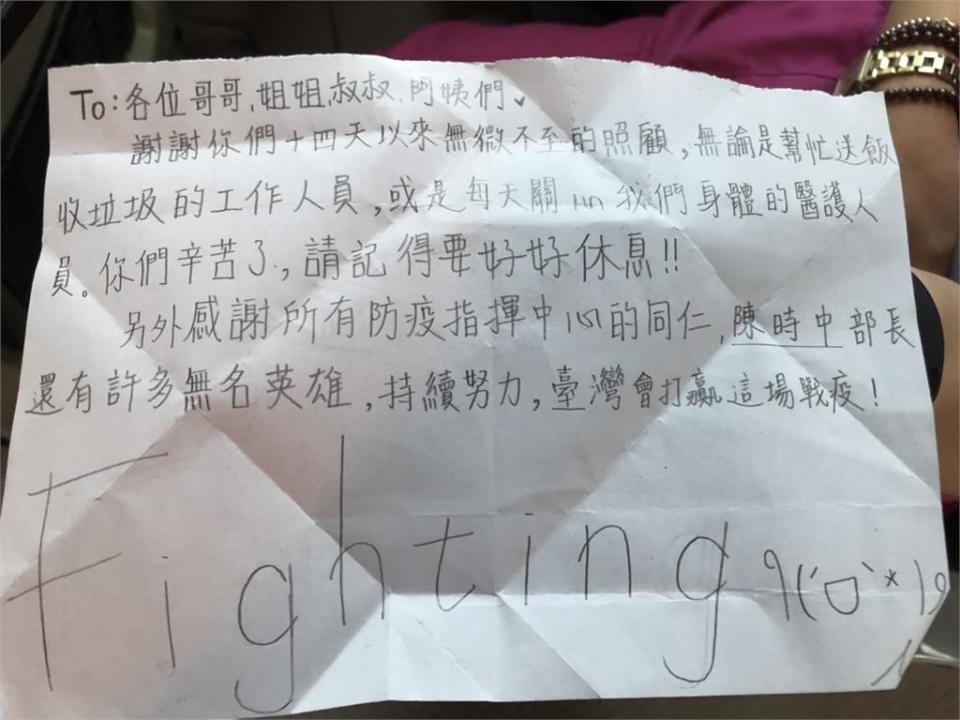 To:各位哥哥、姐姐、叔叔、阿姨們、
謝謝你們十四天以來無微不至的照顧,無論是幫忙送飯
收垃圾的工作人員,或是每天關心我們身體的醫護人
員。你們辛苦了,請記得要好好休息!!
另外感謝所有防疫指揮中心的同仁,陳時中部長
還有許多無名英雄,持續努力,臺灣會打贏這場戰疫!
Fighting 9('ロ`*)9